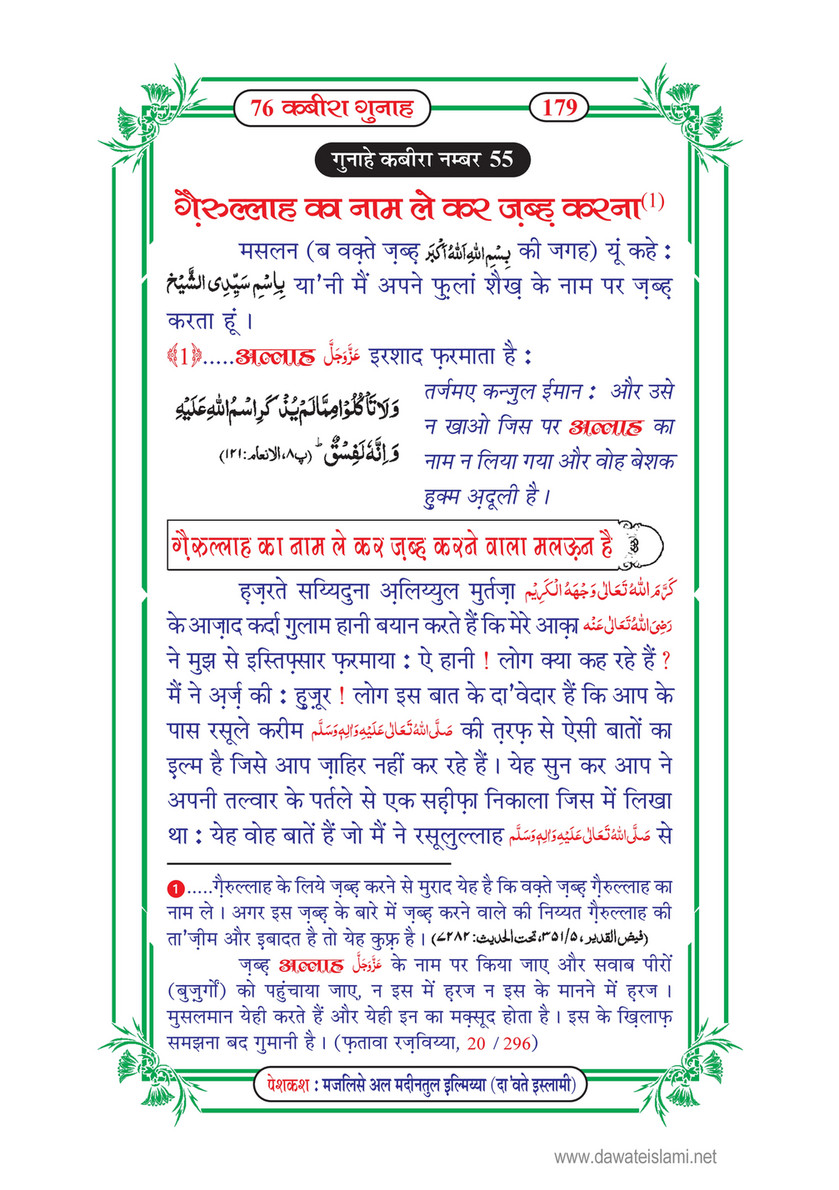 76 कबीरा गुनाह
179
गुनाहे कबीरा नम्बर 55
ग़ैरुल्लाह का नाम ले कर ज़ब्ह़ करना(1)
मसलन (ब वक़्ते ज़ब्ह़ بِسْمِ اللهِ اَللهُ اَكْبَر की जगह) यूं कहे :
بِاسْمِ سَيِّدِى الشَّيْخ या'नी मैं अपने फ़ुलां शैख़ के नाम पर ज़ब्ह़
करता हूं ।
﴾1﴿.....अल्लाह عَزَّوَجَلَّ इरशाद फ़रमाता है :
وَلَا تَاْكُلُوْا مِمَّا لَمْ يُذْكَرِ اسْمُ اللهِ عَلَيْهِ
وَاِنَّهٗ لَفِسْقٌ ؕ (پ۸، الانعام: ۱۲۱)
तर्जमए कन्ज़ुल ईमान : और उसे
न खाओ जिस पर अल्लाह का
नाम न लिया गया और वोह बेशक
हुक्म अ़दूली है ।
ग़ैरुल्लाह का नाम ले कर ज़ब्ह़ करने वाला मलऊ़न है
ह़ज़रते सय्यिदुना अ़लिय्युल मुर्तज़ा كَرَّمَ اللهُ تَعَالٰى وَجْهَهُ الْكَرِيْم
के आज़ाद कर्दा ग़ुलाम हानी बयान करते हैं कि मेरे आक़ा رَضِىَ اللهُ تَعَالٰى عَنْه
ने मुझ से इस्तिफ़्सार फ़रमाया : ऐ हानी ! लोग क्या कह रहे हैं ?
मैं ने अ़र्ज़ की : हुज़ूर ! लोग इस बात के दा'वेदार हैं कि आप के
पास रसूले करीम صَلَّى اللهُ تَعَالٰى عَلَيْهِ وَاٰلِهٖ وَسَلَّم की त़रफ़ से ऐसी बातों का
इ़ल्म है जिसे आप ज़ाहिर नहीं कर रहे हैं । येह सुन कर आप ने
अपनी तल्वार के पर्तले से एक सह़ीफ़ा निकाला जिस में लिखा
था : येह वोह बातें हैं जो मैं ने रसूलुल्लाह صَلَّى اللهُ تَعَالٰى عَلَيْهِ وَاٰلِهٖ وَسَلَّم से
1.....ग़ैरुल्लाह के लिये ज़ब्ह़ करने से मुराद येह है कि वक़्ते ज़ब्ह़ ग़ैरुल्लाह का
नाम ले । अगर इस ज़ब्ह़ के बारे में ज़ब्ह़ करने वाले की निय्यत ग़ैरुल्लाह की
ता'ज़ीम और इ़बादत है तो येह कुफ़्र है । (فیض القدیر، ۳۵۱/۵، تحت الحدیث: ۷۲۸۲)
ज़ब्ह़ अल्लाह عَزَّوَجَلَّ के नाम पर किया जाए और सवाब पीरों
(बुज़ुर्गों) को पहुंचाया जाए, न इस में ह़रज न इस के मानने में ह़रज ।
मुसलमान येही करते हैं और येही इन का मक़्सूद होता है । इस के ख़िलाफ़
समझना बद गुमानी है । (फ़तावा रज़विय्या, 20 / 296)
पेशकश : मजलिसे अल मदीनतुल इल्मिय्या (दा'वते इस्लामी)
www.dawateislami.net